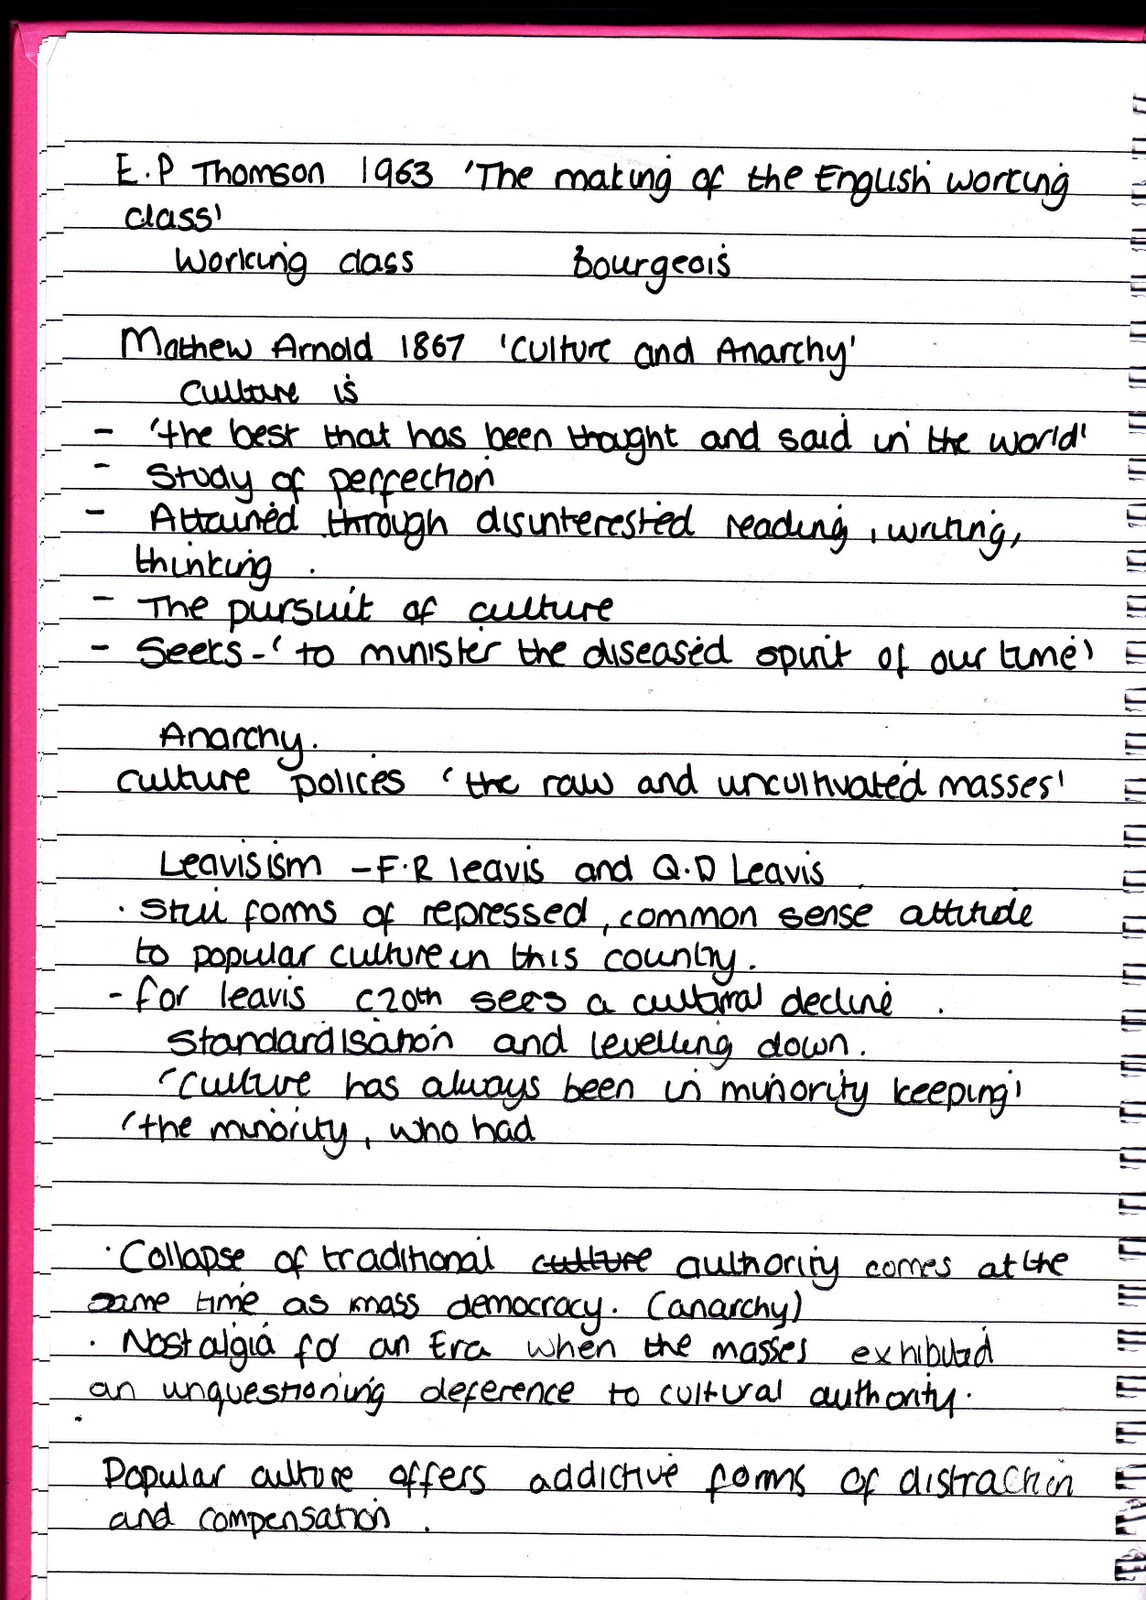 E.P Thomson 1963 'The making of the English working
class'
Working class Bourgeois
Mathew Arnold 1867 'Culture and Anarchy'
Culture is
- 'the best that has been thought and said in the world'
- Study of perfection
- Attained through disinterested reading, writing,
thinking.
- The pursuit of culture
- Seeks - 'to minister the diseased spirit of our time'
Anarchy.
Culture polices 'the raw and uncultivated masses'
Leavisism - F.R leavis and Q.D Leavis
· Still forms of repressed, common sense attitude
to popular culture in this country.
- for leavis C20th sees a cultural decline.
Standardisation and levelling down.
'Culture has always been in minority keeping'
'the minority, who had
· Collapse of traditional culture authority comes at the
same time as mass democracy. (anarchy)
· Nostalgia for an Era when the masses exhibited
an unquestioning deference to cultural authority.
·
Popular culture offers addictive forms of distraction
and compensation.